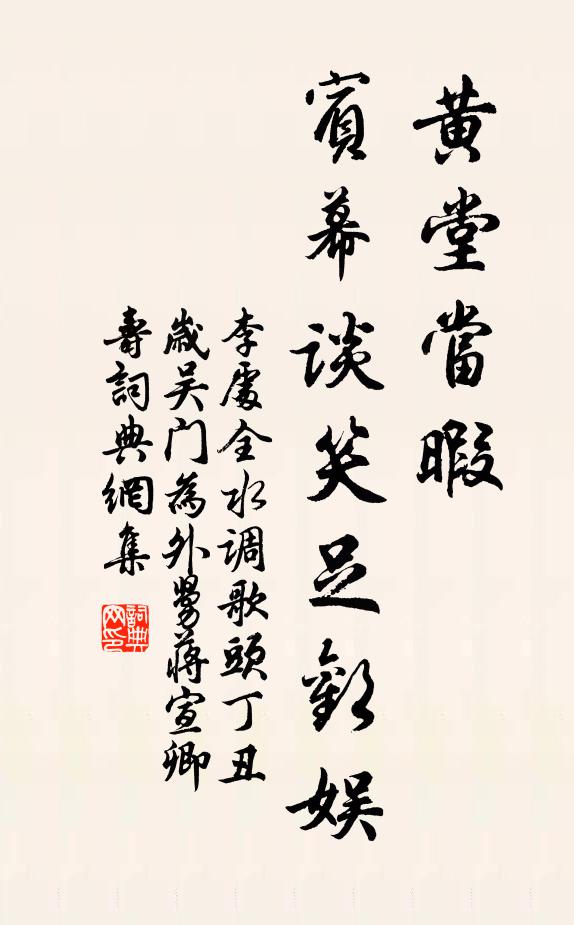 黄堂當暇
賓幕談笑足歡娱
李處全水调歌頭丁丑
歲吴门為外舅蔣宣卿
壽詞典網集
詞典网印